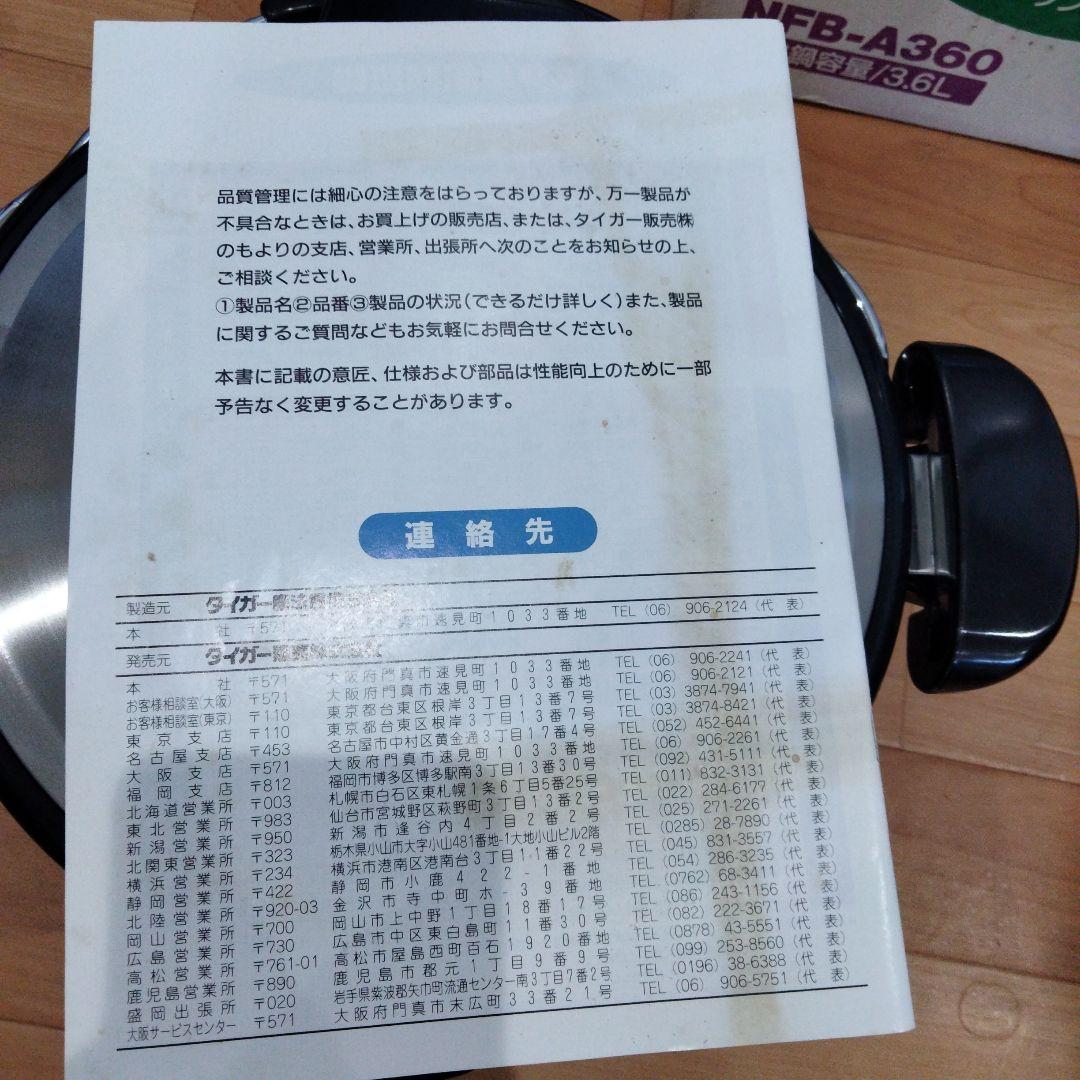 NFB-A360
鍋容量/3.6L
品質管理には細心の注意をはらっておりますが、万一製品が
不具合なときは、お買上げの販売店、または、タイガー販売㈱
のもよりの支店、営業所、出張所へ次のことをお知らせの上、
ご相談ください。
①製品名②品番③製品の状況(できるだけ詳しく)また、製品
に関するご質問などもお気軽にお問合せください。
本書に記載の意匠、仕様および部品は性能向上のために一部
予告なく変更することがあります。
連絡先
製造元 タイガー
本社 〒571 真市速見町1033番地 TEL (06) 906-2124 (代表)
発売元 タイガー
本社 〒571 大阪府門真市速見町1033番地 TEL (06) 906-2241 (代表)
お客様相談室(大阪) 〒571 大阪府門真市速見町1033番地 TEL (06) 906-2121 (代表)
お客様相談室(東京) 〒110 東京都台東区根岸3丁目13番7号 TEL (03) 3874-7941 (代表)
東京支店 〒110 東京都台東区根岸3丁目13番7号 TEL (03) 3874-8421 (代表)
名古屋支店 〒453 名古屋市中村区黄金通3丁目17番4号 TEL (052) 452-6441 (代表)
大阪支店 〒571 大阪府門真市速見町1033番地 TEL (06) 906-2261 (代表)
福岡支店 〒812 福岡市博多区博多駅南3丁目13番30号 TEL (092) 431-5111 (代表)
北海道営業所 〒003 札幌市白石区東札幌1条6丁目5番25号 TEL (011) 832-3131 (代表)
東北営業所 〒983 仙台市宮城野区萩野町3丁目13番2号 TEL (022) 284-6177 (代表)
新潟営業所 〒950 新潟市逢谷内4丁目2番2号 TEL (025) 271-2261 (代表)
北関東営業所 〒323 栃木県小山市大字小山481番地-1大地小山ビル2階 TEL (0285) 28-7890 (代表)
横浜営業所 〒234 横浜市港南区港南台3丁目11番22号 TEL (045) 831-3557 (代表)
静岡営業所 〒422 静岡市小鹿422-1番地 TEL (054) 286-3235 (代表)
北陸営業所 〒920-03 金沢市寺中町ホ-39番地 TEL (0762) 68-3411 (代表)
岡山営業所 〒700 岡山市上中野1丁目18番17号 TEL (086) 243-1156 (代表)
広島営業所 〒730 広島市中区東白島町11番30号 TEL (082) 222-3671 (代表)
高松営業所 〒761-01 高松市屋島西町百石1920番地 TEL (0878) 43-5551 (代表)
鹿児島営業所 〒890 鹿児島市郡元1丁目9番9号 TEL (099) 253-8560 (代表)
盛岡出張所 〒020 岩手県紫波郡矢巾町流通センター南3丁目7番2号 TEL (0196) 38-6388 (代表)
大阪サービスセンター 〒571 大阪府門真市末広町33番21号 TEL (06) 906-5751 (代表)